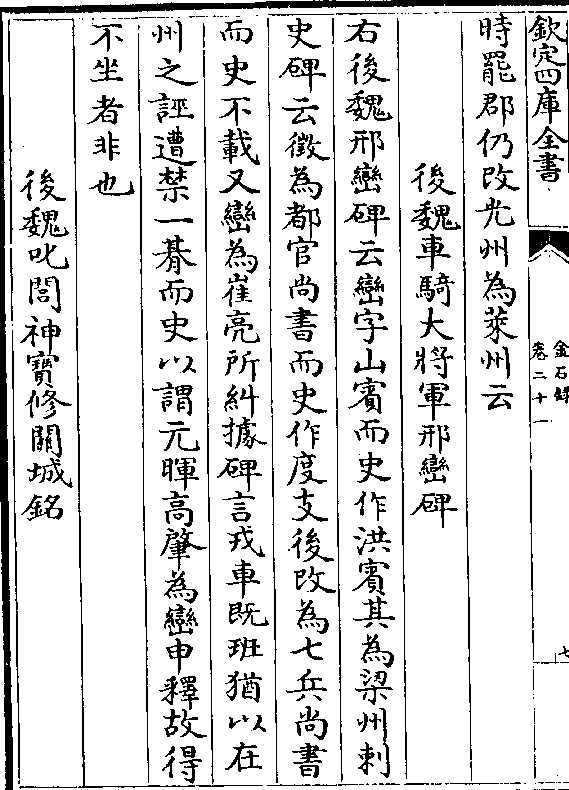 欽定四庫全書
金石錄
卷二十一
七
時罷郡仍改光州為萊州云
後魏車騎大將軍邢巒碑
右後魏邢巒碑云巒字山賓而史作洪賓其為梁州刺
史碑云徵為都官尚書而史作度支後改為七兵尚書
而史不載又巒為崔亮所糾據碑言戎車既班猶以在
州之誣遭禁一朞而史以謂元暉高肇為巒申釋故得
不坐者非也
後魏叱閭神寶修關城銘